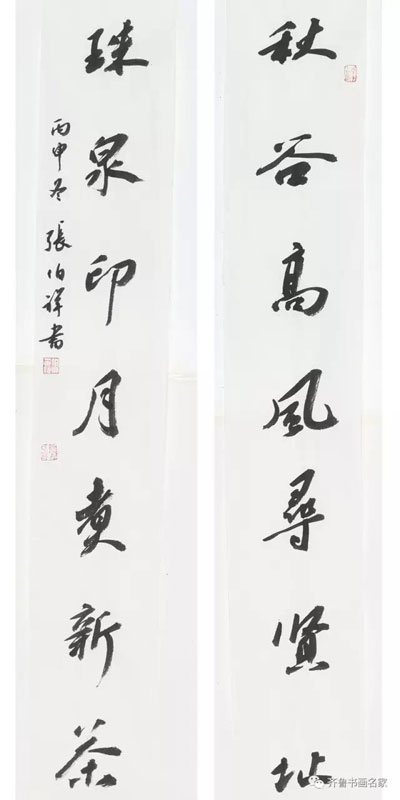 秋谷高風尋贤址
珠泉印月煮新茶
丙申冬 張伯祥書
齐鲁书画名家